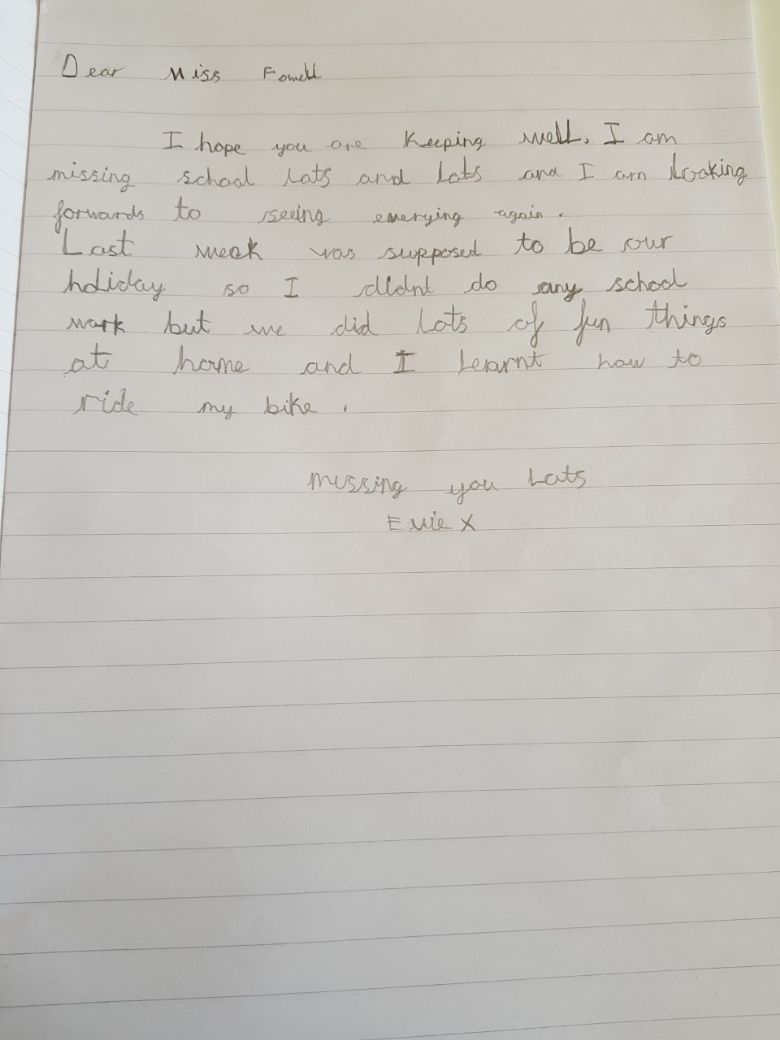 Dear Miss Fowell
I hope you are Keeping well. I am
missing school lots and lots and I am looking
forwards to seeing everying again.
Last week was supposed to be our
holiday so I didnt do any school
work but we did lots of fun things
at home and I learnt how to
ride my bike.
missing you lots
Evie X